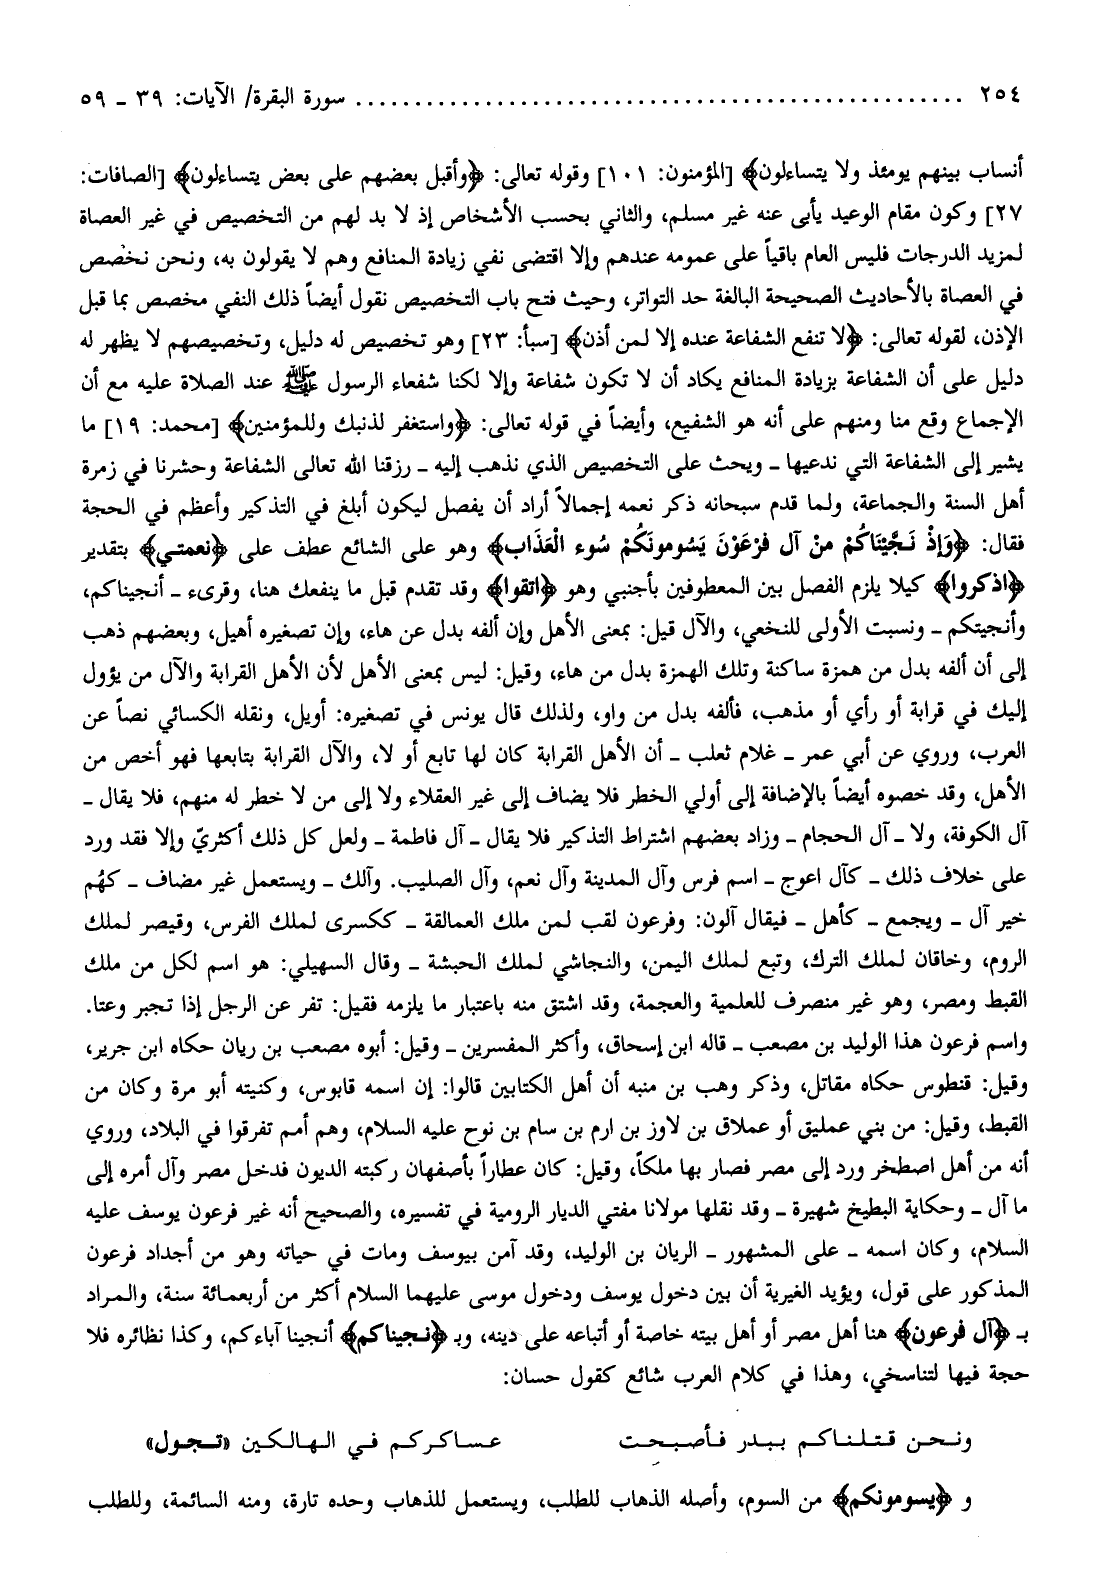 ٢٥٤ .................................................... سورة البقرة/ الآيات: ٣٩ ـ ٥٩
أنساب بينهم يومئذ ولا يتساءلون﴾ [المؤمنون: ١٠١] وقوله تعالى: ﴿وأقبل بعضهم على بعض يتساءلون﴾ [الصافات:
٢٧] وكون مقام الوعيد يأبى عنه غير مسلم، والثاني بحسب الأشخاص إذ لا بد لهم من التخصيص في غير العصاة
لمزيد الدرجات فليس العام باقياً على عمومه عندهم وإلا اقتضى نفي زيادة المنافع وهم لا يقولون به، ونحن نخصص
في العصاة بالأحاديث الصحيحة البالغة حد التواتر، وحيث فتح باب التخصيص نقول أيضاً ذلك النفي مخصص بما قبل
الإذن، لقوله تعالى: ﴿لا تنفع الشفاعة عنده إلا لمن أذن﴾ [سبأ: ٢٣] وهو تخصيص له دليل، وتخصيصهم لا يظهر له
دليل على أن الشفاعة بزيادة المنافع يكاد أن لا تكون شفاعة وإلا لكنا شفعاء الرسول ﷺ عند الصلاة عليه مع أن
الإجماع وقع منا ومنهم على أنه هو الشفيع، وأيضاً في قوله تعالى: ﴿واستغفر لذنبك وللمؤمنين﴾ [محمد: ١٩] ما
يشير إلى الشفاعة التي ندعيها ـ ويحث على التخصيص الذي نذهب إليه ـ رزقنا الله تعالى الشفاعة وحشرنا في زمرة
أهل السنة والجماعة، ولما قدم سبحانه ذكر نعمه إجمالاً أراد أن يفصل ليكون أبلغ في التذكير وأعظم في الحجة
فقال: ﴿وَإِذْ نَجَّيْنَاكُمْ مِنْ آل فِرْعَوْنَ يَسُومونَكُمْ سُوء الْعَذَاب﴾ وهو على الشائع عطف على ﴿نعمتي﴾ بتقدير
﴿اذكروا﴾ كيلا يلزم الفصل بين المعطوفين بأجنبي وهو ﴿اتقوا﴾ وقد تقدم قبل ما ينفعك هنا، وقرىء ـ أنجيناكم،
وأنجيتكم ـ ونسبت الأولى للنخعي، والآل قيل: بمعنى الأهل وإن ألفه بدل عن هاء، وإن تصغيره أهيل، وبعضهم ذهب
إلى أن ألفه بدل من همزة ساكنة وتلك الهمزة بدل من هاء، وقيل: ليس بمعنى الأهل لأن الأهل القرابة والآل من يؤول
إليك في قرابة أو رأي أو مذهب، فألفه بدل من واو، ولذلك قال يونس في تصغيره: أويل، ونقله الكسائي نصاً عن
العرب، وروي عن أبي عمر ـ غلام ثعلب ـ أن الأهل القرابة كان لها تابع أو لا، والآل القرابة بتابعها فهو أخص من
الأهل، وقد خصوه أيضاً بالإضافة إلى أولي الخطر فلا يضاف إلى غير العقلاء ولا إلى من لا خطر له منهم، فلا يقال ـ
آل الكوفة، ولا ـ آل الحجام ـ وزاد بعضهم اشتراط التذكير فلا يقال ـ آل فاطمة ـ ولعل كل ذلك أكثريّ وإلا فقد ورد
على خلاف ذلك ـ كآل اعوج ـ اسم فرس وآل المدينة وآل نعم، وآل الصليب. وآلك ـ ويستعمل غير مضاف ـ كهُم
خير آل ـ ويجمع ـ كأهل ـ فيقال آلون: وفرعون لقب لمن ملك العمالقة ـ ككسرى لملك الفرس، وقيصر لملك
الروم، وخاقان لملك الترك، وتبع لملك اليمن، والنجاشي لملك الحبشة ـ وقال السهيلي: هو اسم لكل من ملك
القبط ومصر، وهو غير منصرف للعلمية والعجمة، وقد اشتق منه باعتبار ما يلزمه فقيل: تفر عن الرجل إذا تجبر وعتا.
واسم فرعون هذا الوليد بن مصعب ـ قاله ابن إسحاق، وأكثر المفسرين ـ وقيل: أبوه مصعب بن ريان حكاه ابن جرير،
وقيل: قنطوس حكاه مقاتل، وذكر وهب بن منبه أن أهل الكتابين قالوا: إن اسمه قابوس، وكنيته أبو مرة وكان من
القبط، وقيل: من بني عمليق أو عملاق بن لاوز بن ارم بن سام بن نوح عليه السلام، وهم أمم تفرقوا في البلاد، وروي
أنه من أهل اصطخر ورد إلى مصر فصار بها ملكاً، وقيل: كان عطاراً بأصفهان ركبته الديون فدخل مصر وآل أمره إلى
ما آل ـ وحكاية البطيخ شهيرة ـ وقد نقلها مولانا مفتي الديار الرومية في تفسيره، والصحيح أنه غير فرعون يوسف عليه
السلام، وكان اسمه ـ على المشهور ـ الريان بن الوليد، وقد آمن بيوسف ومات في حياته وهو من أجداد فرعون
المذكور على قول، ويؤيد الغيرية أن بين دخول يوسف ودخول موسى عليهما السلام أكثر من أربعمائة سنة، والمراد
بـ ﴿آل فرعون﴾ هنا أهل مصر أو أهل بيته خاصة أو أتباعه على دينه، وبـ ﴿نجيناكم﴾ أنجينا آباءكم، وكذا نظائره فلا
حجة فيها لتناسخي، وهذا في كلام العرب شائع كقول حسان:
ونحن قتلناكم ببدر فأصبحت عساكركم في الهالكين «تجول»
و ﴿يسومونكم﴾ من السوم، وأصله الذهاب للطلب، ويستعمل للذهاب وحده تارة، ومنه السائمة، وللطلب